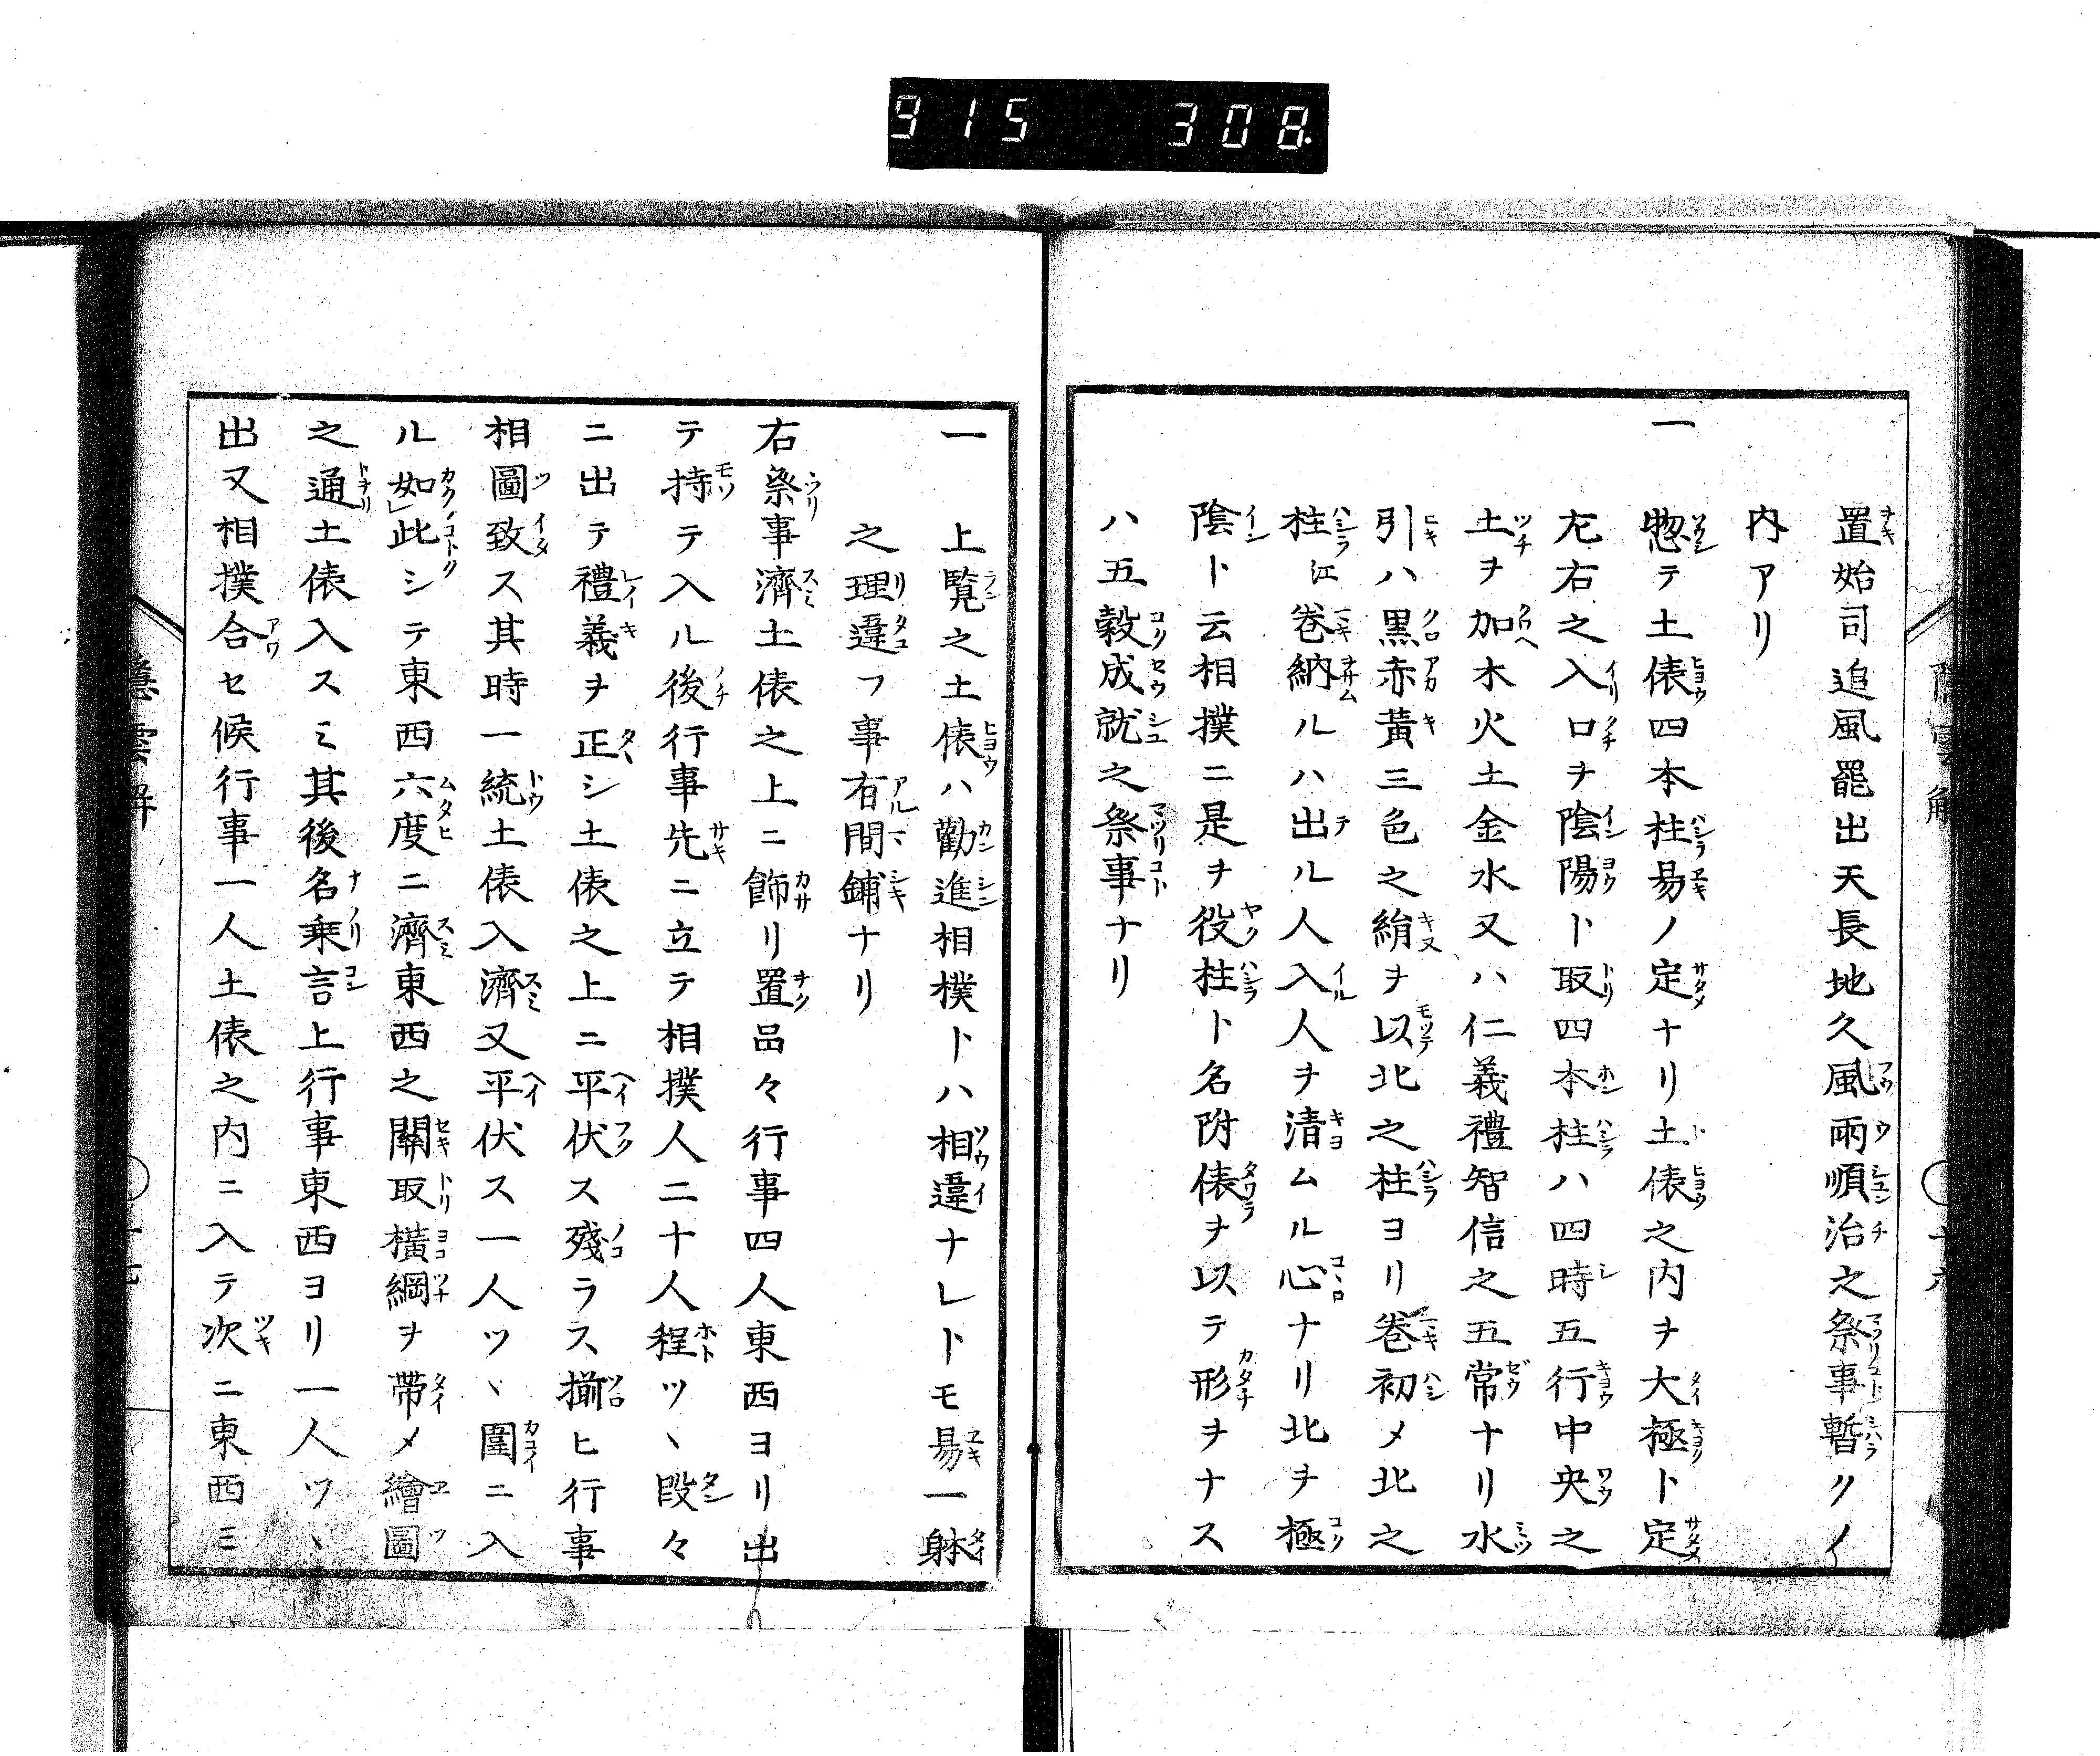 915 308
置始司追風罷出天長地久風雨順治之祭事暫クノ
内アリ
一
惣テ土俵四本柱易ノ定ナリ土俵之内ヲ大極ト定
左右之入口ヲ陰陽ト取四本柱ハ四時五行中央之
土ヲ加木火土金水又ハ仁義禮智信之五常ナリ水
引ハ黒赤黄三色之絹ヲ以北之柱ヨリ巻初メ北之
柱江巻納ルハ出ル人入人ヲ清ムル心ナリ北ヲ極
陰ト云相撲ニ是ヲ役柱ト名附俵ヲ以テ形ヲナス
ハ五穀成就之祭事ナリ
一
上覧之土俵ハ勸進相撲トハ相違ナレトモ易一躰
之理違フ事有間鋪ナリ
右祭事濟土俵之上ニ飾リ置品々行事四人東西ヨリ出
テ持テ入ル後行事先ニ立テ相撲人二十人程ツヽ段々
ニ出テ禮義ヲ正シ土俵之上ニ平伏ス殘ラス揃ヒ行事
相圖致ス其時一統土俵入濟又平伏ス一人ツヽ圍ニ入
ル如此シテ東西六度ニ濟東西之關取横綱ヲ帶メ繪圖
之通土俵入スミ其後名乗言上行事東西ヨリ一人ツヽ
出又相撲合セ候行事一人土俵之内ニ入テ次ニ東西ニ